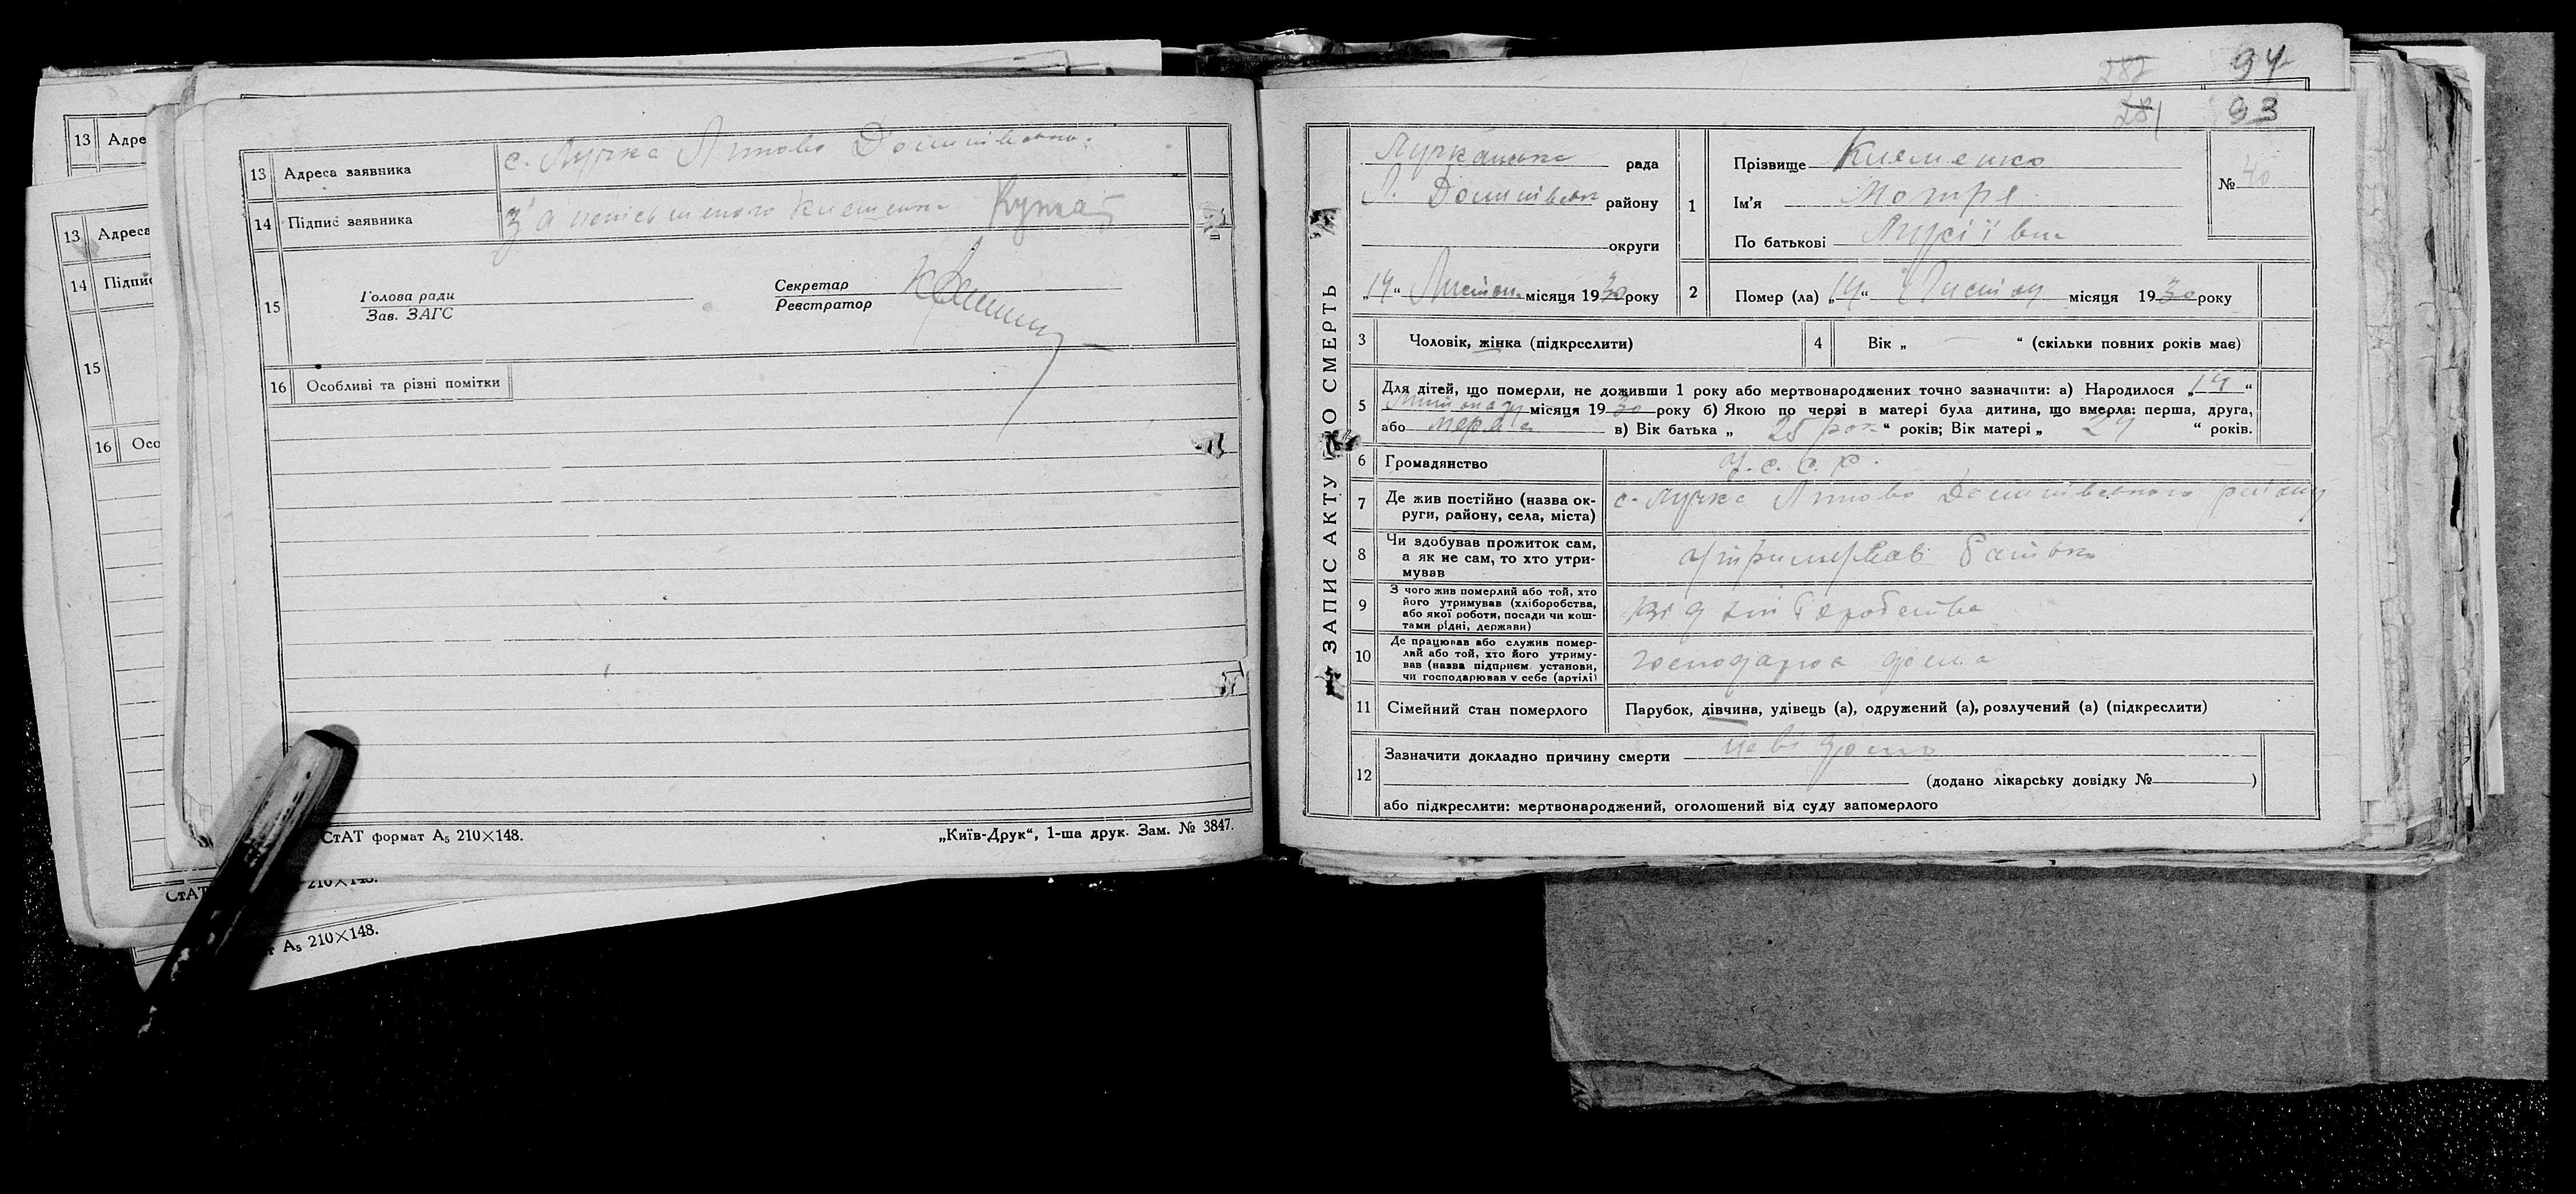 13 Адре
13 Адреса
14 Підпис
15
16 Осо
13 Адреса заявника с. Лучка Липово Долинівсько.
14 Підпис заявника За неписьменого Клеменка
15 Голова ради
Зав. ЗАГС
Секретар
Реєстратор
16 Особливі та різні помітки
СтАТ формат А₅ 210×148.
„Київ-Друк“, 1-ша друк. Зам. № 3847.
СтАТ 210×148.
А₅ 210×148.
282 94
281 93
ЗАПИС АКТУ ПРО СМЕРТЬ
Лучканська рада
Л. Долинівськ району
округи
„14“ Листоп. місяця 1930 року
1 Прізвище Клеменко
Ім'я Мотря
По батькові
№ 40
2 Помер (ла) „14“ Листопу місяця 1930 року
3 Чоловік, жінка (підкреслити)
4 Вік „ — “ (скільки повних років має)
5 Для дітей, що померли, не доживши 1 року або мертвонароджених точно зазначити: а) Народилося „14“
Листопаду місяця 1930 року б) Якою по черзі в матері була дитина, що вмерла: перша, друга,
або перша в) Вік батька „25 рок“ років; Вік матері „24“ років.
6 Громадянство У.С.С.Р.
7 Де жив постійно (назва округи, району, села, міста) с. Лучка Липово Долинівського району
8 Чи здобував прожиток сам,
а як не сам, то хто утримував
утримував батько
9 З чого жив померлий або той, хто
його утримував (хліборобства,
або якої роботи, посади чи коштами рідні, держави)
від хліборобства
10 Де працював або служив померлий або той, хто його утримував (назва підприєм. установи,
чи господарював у себе (артілі)
господарюв дома
11 Сімейний стан померлого Парубок, дівчина, удівець (а), одружений (а), розлучений (а) (підкреслити)
12 Зазначити докладно причину смерті невідомо
(додано лікарську довідку № )
або підкреслити: мертвонароджений, оголошений від суду запомерлого